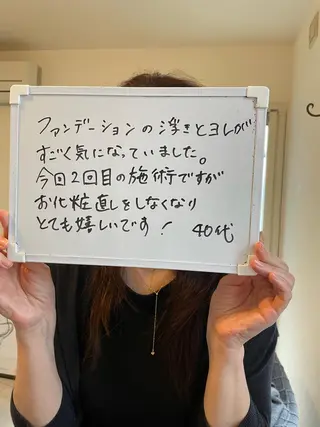 ファンデーションの浮きとヨレが
すごく気になっていました。
今回2回目の施術ですが
お化粧直しをしなくなり
とても嬉しいです！ 40代